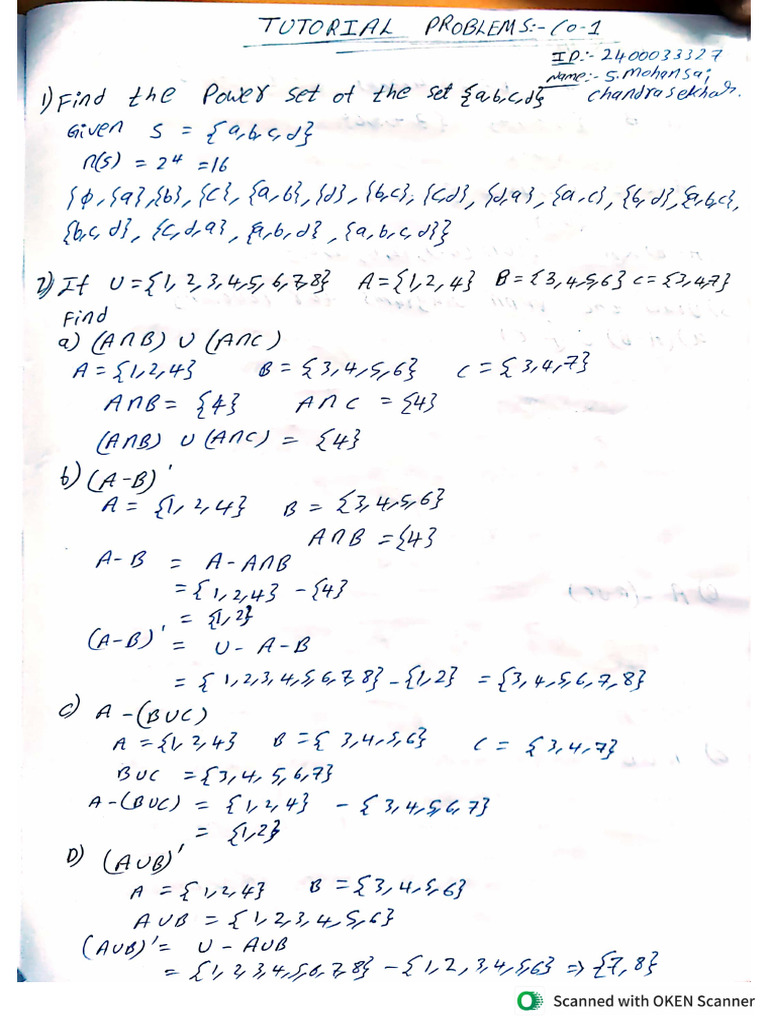 TUTORIAL PROBLEMS:- CO-1
ID:- 2400033327
Name:- S. Mohansai
chandrasekhar.
1) Find the Power set of the set {a,b,c,d}
Given S = {a,b,c,d}
n(s) = 2⁴ = 16
{ϕ, {a}, {b}, {c}, {a,b}, {d}, {b,c}, {c,d}, {d,a}, {a,c}, {b,d}, {a,b,c},
{b,c,d}, {c,d,a}, {a,b,d}, {a,b,c,d}}
2) If U = {1,2,3,4,5,6,7,8} A = {1,2,4} B = {3,4,5,6} C = {3,4,7}
Find
a) (A∩B) ∪ (A∩C)
A = {1,2,4} B = {3,4,5,6} C = {3,4,7}
A∩B = {4} A∩C = {4}
(A∩B) ∪ (A∩C) = {4}
b) (A-B)'
A = {1,2,4} B = {3,4,5,6}
A∩B = {4}
A-B = A-A∩B
= {1,2,4} - {4}
= {1,2}
(A-B)' = U-A-B
= {1,2,3,4,5,6,7,8} - {1,2} = {3,4,5,6,7,8}
c) A-(B∪C)
A = {1,2,4} B = {3,4,5,6} C = {3,4,7}
B∪C = {3,4,5,6,7}
A-(B∪C) = {1,2,4} - {3,4,5,6,7}
= {1,2}
D) (A∪B)'
A = {1,2,4} B = {3,4,5,6}
A∪B = {1,2,3,4,5,6}
(A∪B)' = U - A∪B
= {1,2,3,4,5,6,7,8} - {1,2,3,4,5,6} => {7,8}
Scanned with OKEN Scanner